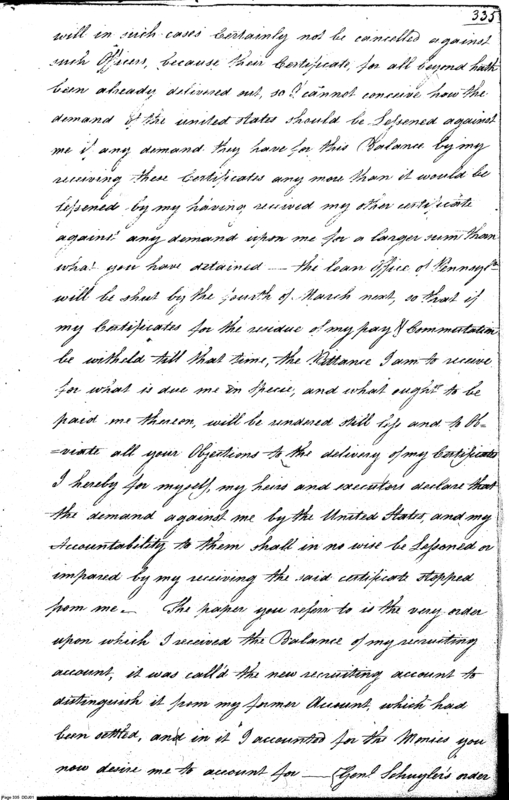 335
will in such cases Certainly not be cancelled against
such Officers, because their Certificate, for all beyond hath
been already delivered out, so I cannot conceive how the
demand of the united States should be Lessened against
me if any demand they have for this Balance by my
receiving these Certificates any more than it would be
lessened by my having received my other certificate
against any demand upon me for a larger sum than
what you have detained — the loan Office of Pennsylva
will be shut by the fourth of March next, so that if
my Certificates for the residue of my pay & Commutation
be witheld till that time, the Pittance I am to receive
for what is due me in Specie, and what ought to be
paid me thereon, will be rendered still less and to Ob=
=viate all your Objections to the delivery of my Certificates
I hereby for myself, my heirs and executors declare that
the demand against me by the United States, and my
Accountability to them shall in no wise be Lessoned or
impared by my receiving the said certificate stopped
from me. The paper you referr to is the very order
upon which I received the Balance of my recruiting
account, it was call'd the new recruiting account to
distinguish it from my former Account, which had
been settled, and in it I accounted for the Monies you
now desire me to account for — Genl Schuyler's order